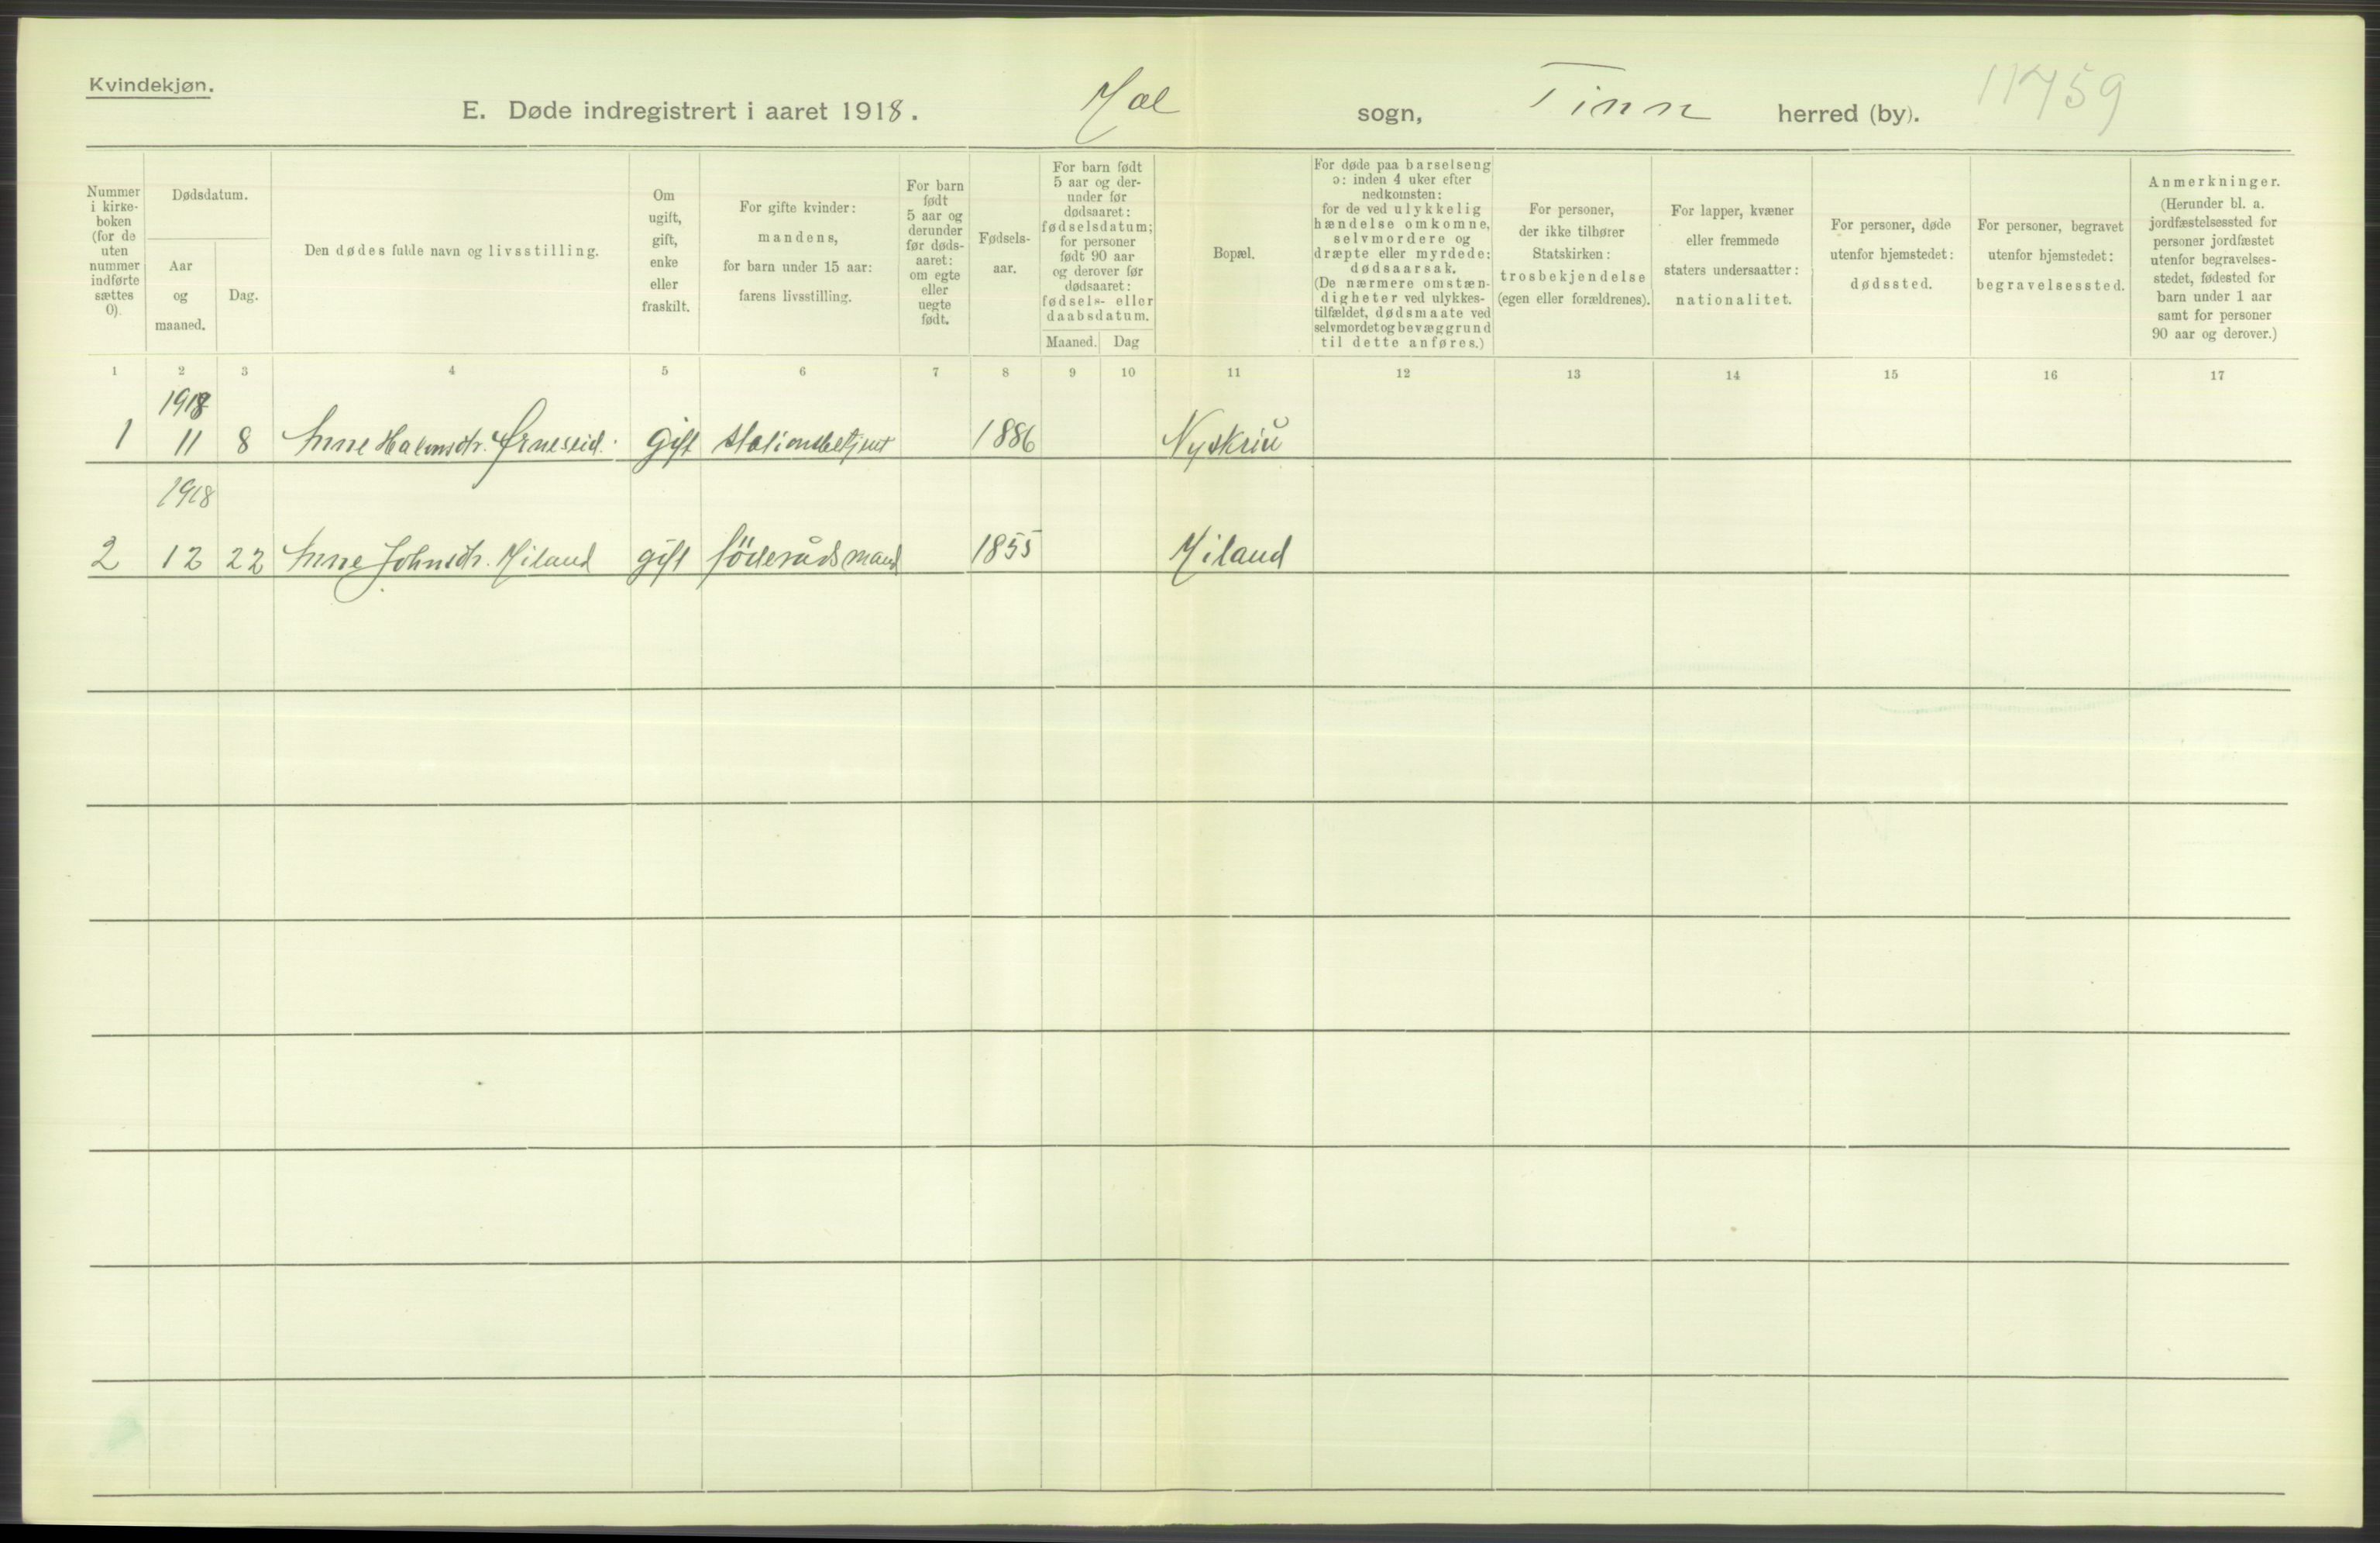 Kvindekjøn.
E. Døde indregistrert i aaret 1918. Mæl sogn, Tinn herred (by). 11459
Nummer i kirke-boken (for de uten nummer indførte sættes 0).
Dødsdatum.
Aar og maaned.
Dag.
Den dødes fulde navn og livsstilling.
Om ugift, gift, enke eller fraskilt.
For gifte kvinder: mandens, for barn under 15 aar: farens livsstilling.
For barn født 5 aar og derunder før døds-aaret: om egte eller uegte født.
Fødsels-aar.
For barn født 5 aar og der-under før dødsaaret: fødselsdatum; for personer født 90 aar og derover før dødsaaret: fødsels- eller daabsdatum.
Maaned. Dag
Bopæl.
For døde paa barselseng ɔ: inden 4 uker efter nedkomsten: for de ved ulykkelig hændelse omkomne, selvmordere og dræpte eller myrdede: dødsaarsak. (De nærmere omstæn-digheter ved ulykkes-tilfældet, dødsmaate ved selvmordet og bevæggrund til dette anføres.)
For personer, der ikke tilhører Statskirken: trosbekjendelse (egen eller forældrenes).
For lapper, kvæner eller fremmede staters undersaatter: nationalitet.
For personer, døde utenfor hjemstedet: dødssted.
For personer, begravet utenfor hjemstedet: begravelsessted.
Anmerkninger. (Herunder bl. a. jordfæstelsessted for personer jordfæstet utenfor begravelses-stedet, fødested for barn under 1 aar samt for personer 90 aar og derover.)
1 2 3 4 5 6 7 8 9 10 11 12 13 14 15 16 17
1918
1 11 8 Anne Halvorsdtr. Ørneseid. gift stationsbetjent 1886
1918
2 12 22 Anne Johnsdtr. Miland gift föderåds mand 1855 Miland